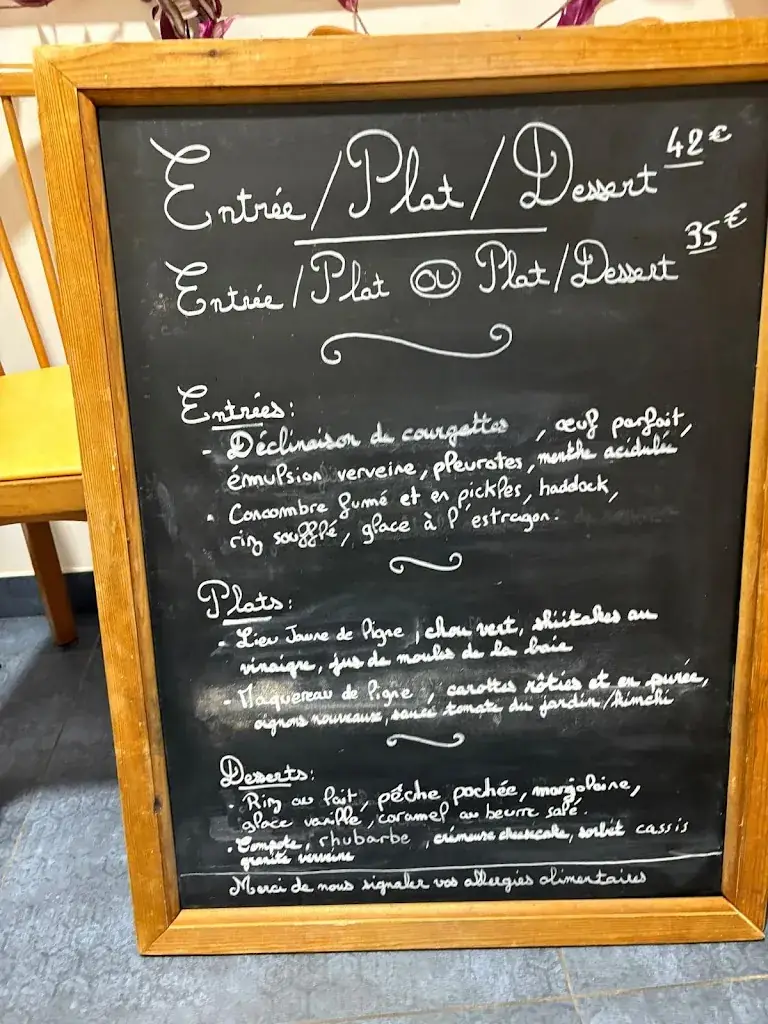 Entrée/Plat/Dessert 42€
Entrée/Plat OU Plat/Dessert 35€
Entrées:
- Déclinaison de courgettes, œuf parfait,
émulsion verveine, pleurotes, menthe acidulée
- Concombre fumé et en pickles, haddock,
riz soufflé, glace à l'estragon.
Plats:
- Lieu Jaune de ligne, chou vert, shiitakes au
vinaigre, jus de moules de la baie
- Maquereau de ligne, carottes rôties et en purée,
oignons nouveaux, sauce tomate du jardin/kimchi
Desserts:
- Riz au lait, pêche pochée, marjolaine,
glace vanille, caramel au beurre salé.
- Compote, rhubarbe, crémeux cheesecake, sorbet cassis
granité verveine
Merci de nous signaler vos allergies alimentaires